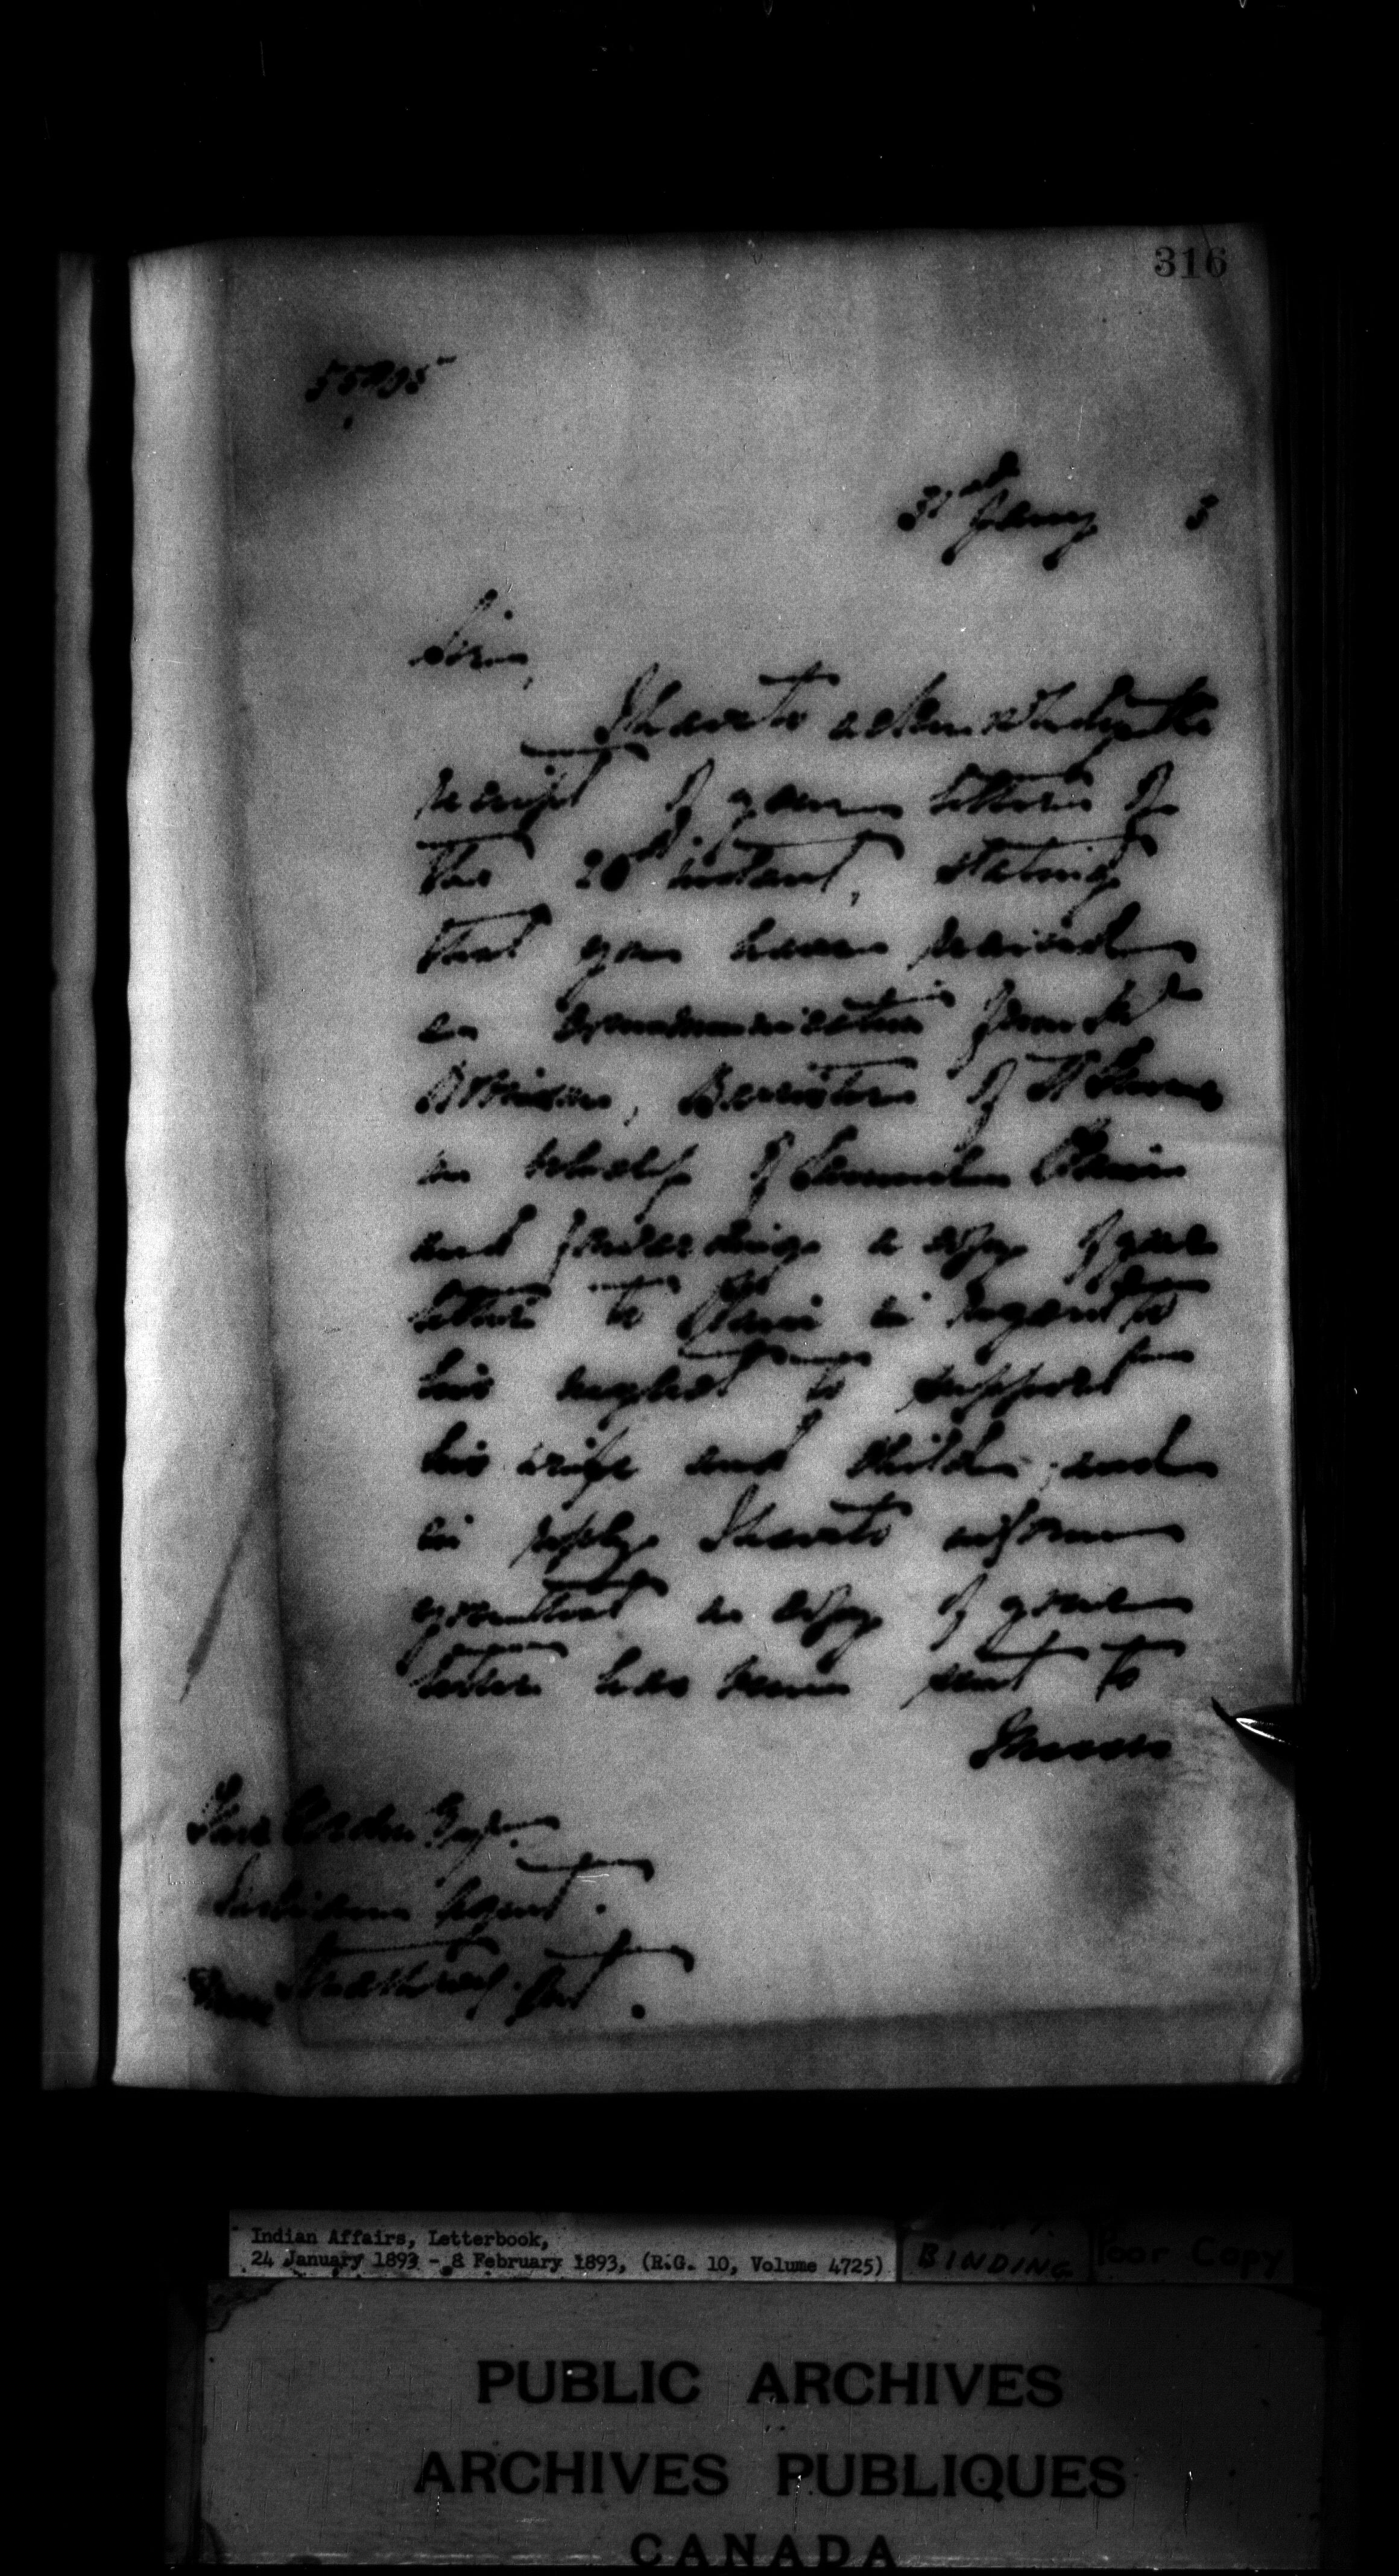 316
31st Jany 3
Sir,
I have to acknowledge the
receipt of your letter of
the 28th instant, stating
that you have received
a communication from
Barrister of St Thomas
on behalf of Samuel
and forwarding a copy of your
letter to in regard to
his neglect to support
his wife and children, and
in reply I have to inform
you that a copy of your
letter has been sent to
Messrs
Esqre
Indian Agent.
Near Strathroy. Ont.
Indian Affairs, Letterbook,
24 January 1893 - 8 February 1893, (R.G. 10, Volume 4725)
BINDING
Poor Copy
PUBLIC ARCHIVES
ARCHIVES PUBLIQUES
CANADA